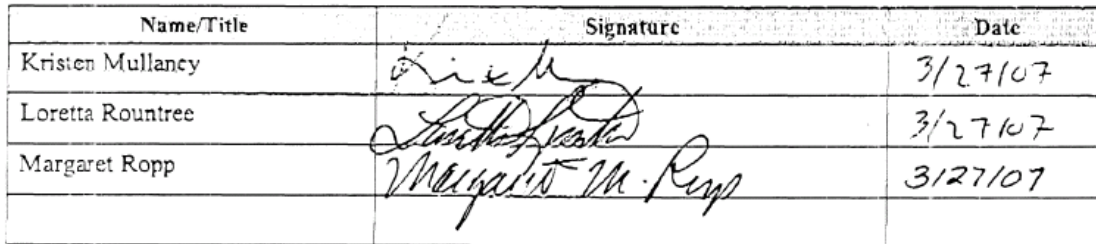 Name/Title Signature Date
Kristen Mullaney 3/27/07
Loretta Rountree 3/27/07
Margaret Ropp Margaret M. Ropp 3/27/07